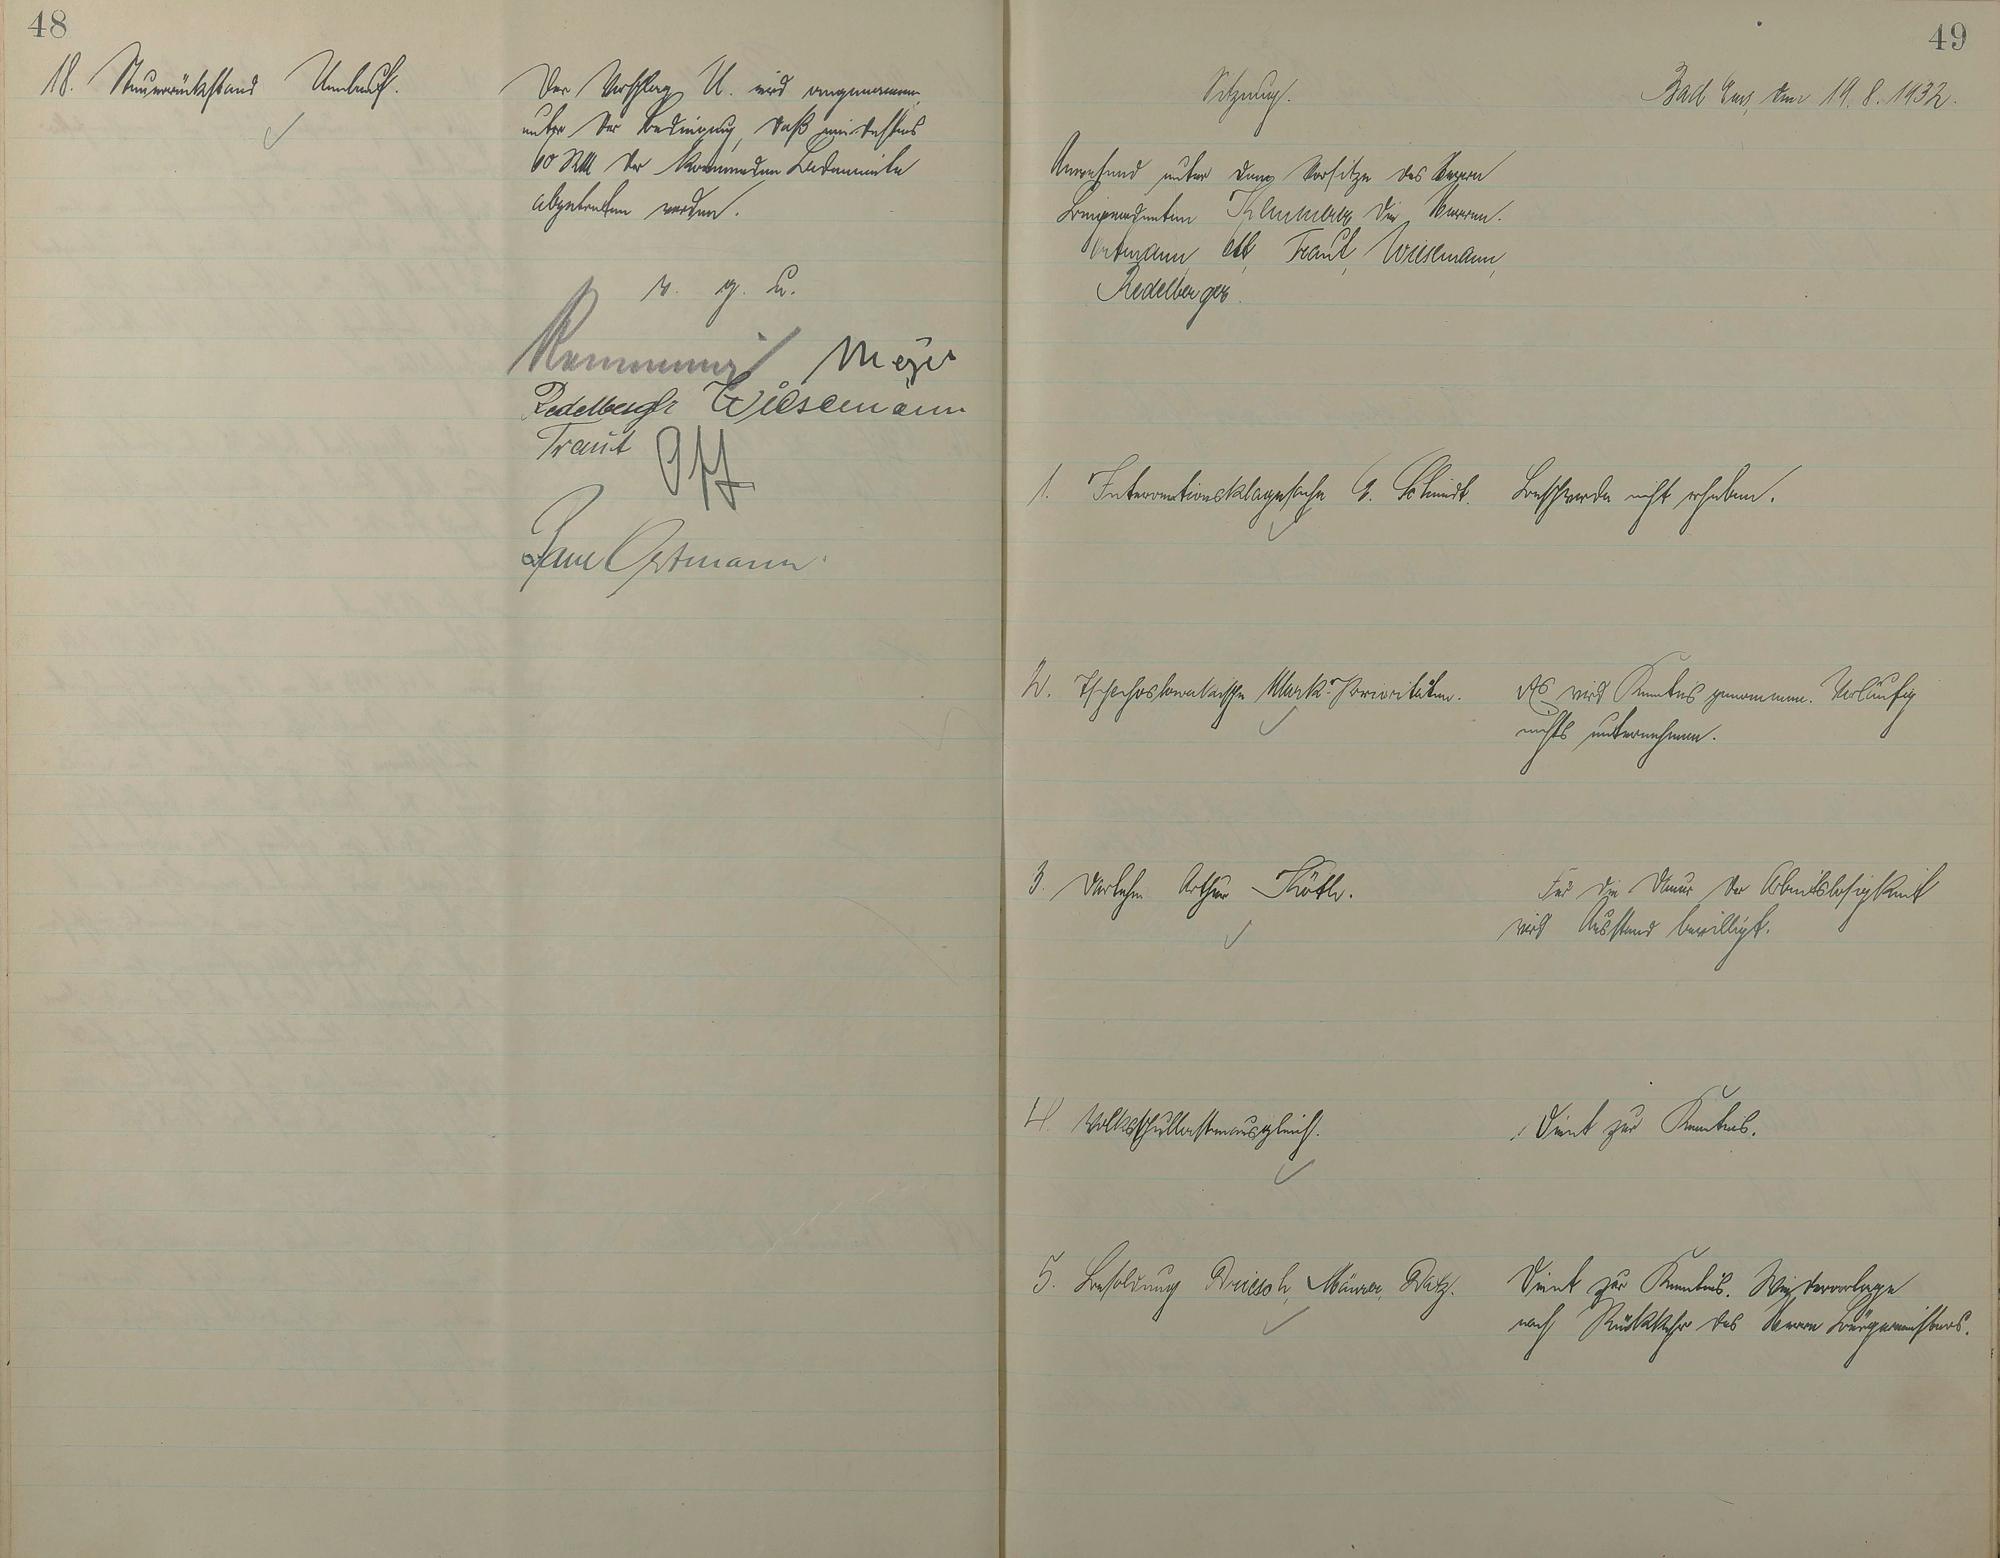 48
18. Steuerrückstand Umbach.
Der Vorschlag U. wird angenommen
unter der Bedingung, daß mindestens
60 RM der kommenden Lademiete
abgetreten werden.
v. g. u.
Meyer
Redelberger Wiesemann
Traut Ott
Ortmann
49
Sitzung.
Bad Ems, den 19. 8. 1932.
Anwesend unter dem Vorsitze des Herrn
Beigeordneten die Herren.
Ortmann, Ott, Traut, Wiesemann,
Redelberger.
1. Interventionsklagesache G. Schmidt.
Beschwerde nicht erheben.
2. Tschechoslowakische Mark-Prioritäten.
Es wird Kenntnis genommen. Vorläufig
nichts unternehmen.
3. Darlehn Arthur
Für die Dauer der Arbeitslosigkeit
wird Ausstand bewilligt.
4. Volksschullastenausgleich.
Dient zur Kenntnis.
5. Besoldung Driesch, Mäurer, Datz.
Dient zur Kenntnis. Wiedervorlage
nach Rückkehr des Herrn Bürgermeisters.